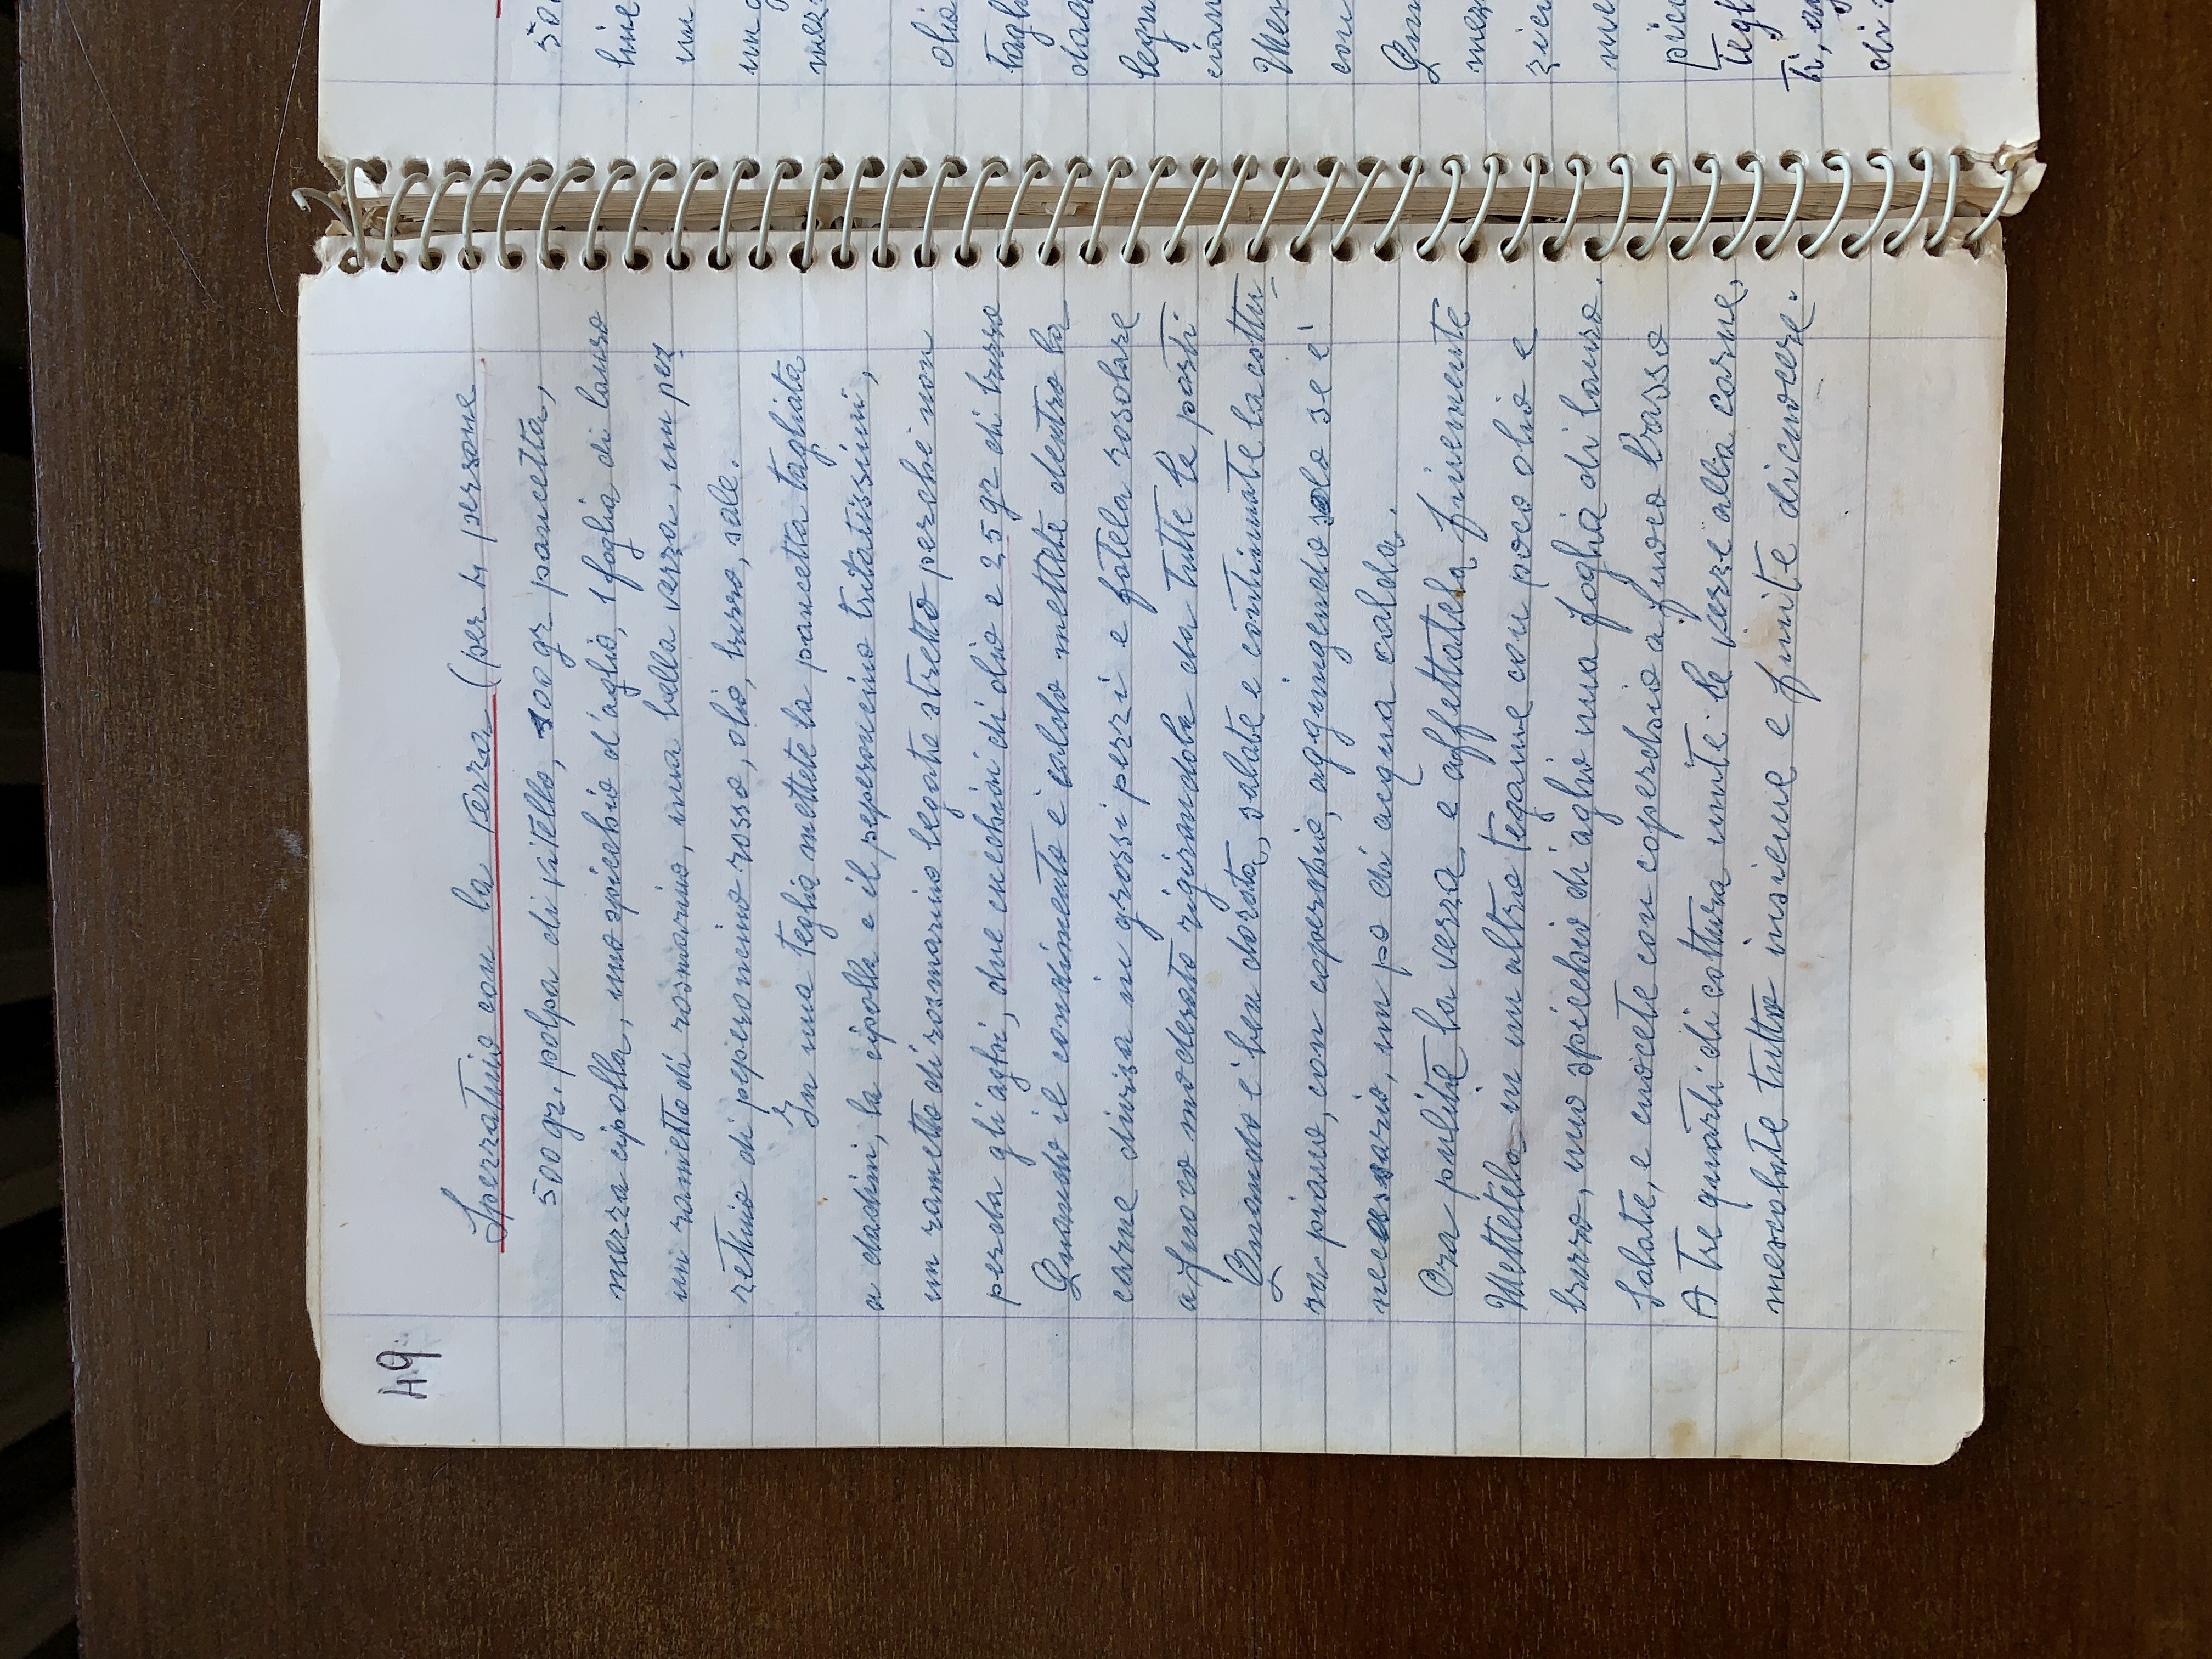 49
Spezzatino con la verza (per 4 persone
500 gr. polpa di vitello, 100 gr pancetta,
mezza cipolla, uno spicchio d'aglio, 1 foglia di lauro
un rametto di rosmarino, una bella verza, un pez
zettino di peperoncino rosso, olio, burro, sale.
In una teglia mettete la pancetta tagliata
a dadini, la cipolla e il peperoncino tritatissimi,
un rametto di rosmarino legato stretto perché non
perda gli aghi, due cucchiai di olio e 25 gr di burro
Quando il condimento è caldo mettete dentro la
carne divisa in grossi pezzi e fatela rosolare
a fuoco moderato rigirandola da tutte le parti
Quando è ben dorata, salate e continuate la cottu-
ra piano, con coperchio, aggiungendo solo se e'
necessario, un po di acqua calda.
Ora pulite la verza e affettatela finemente
Mettetela in un altro tegame con poco olio e
burro, uno spicchio di aglio una foglia di lauro.
Salate, e cuocete con coperchio a fuoco basso
A tre quarti di cottura unite le verze alla carne,
mescolate tutto insieme e finite di cuocere.
50
line
un
un g
mez
olio
tagl
dad
legn
cian
Mes
con
Qua
mez
zio
me
pico
tegl
ti, ag
di